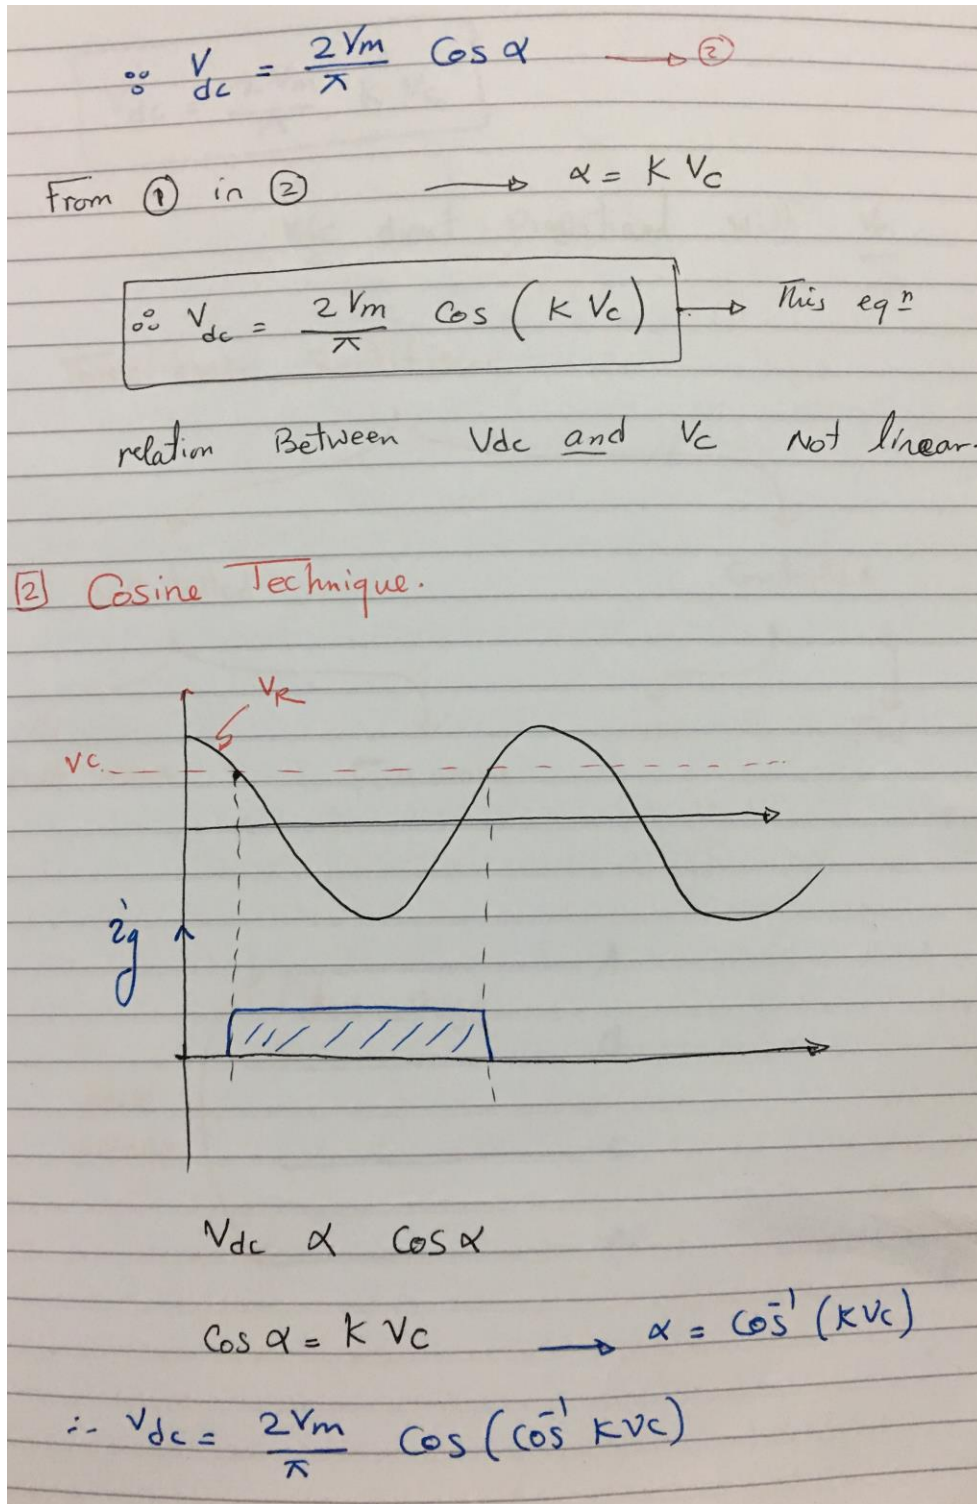 ∴ Vdc = 2Vm/π Cos α → ②
From ① in ② → α = K Vc
∴ Vdc = 2Vm/π Cos (K Vc) → This eqⁿ
relation Between Vdc and Vc Not linear.
[2] Cosine Technique.
VR
Vc
ig
Vdc α Cos α
Cos α = K Vc → α = Cos⁻¹ (K Vc)
∴ Vdc = 2Vm/π Cos (Cos⁻¹ K Vc)